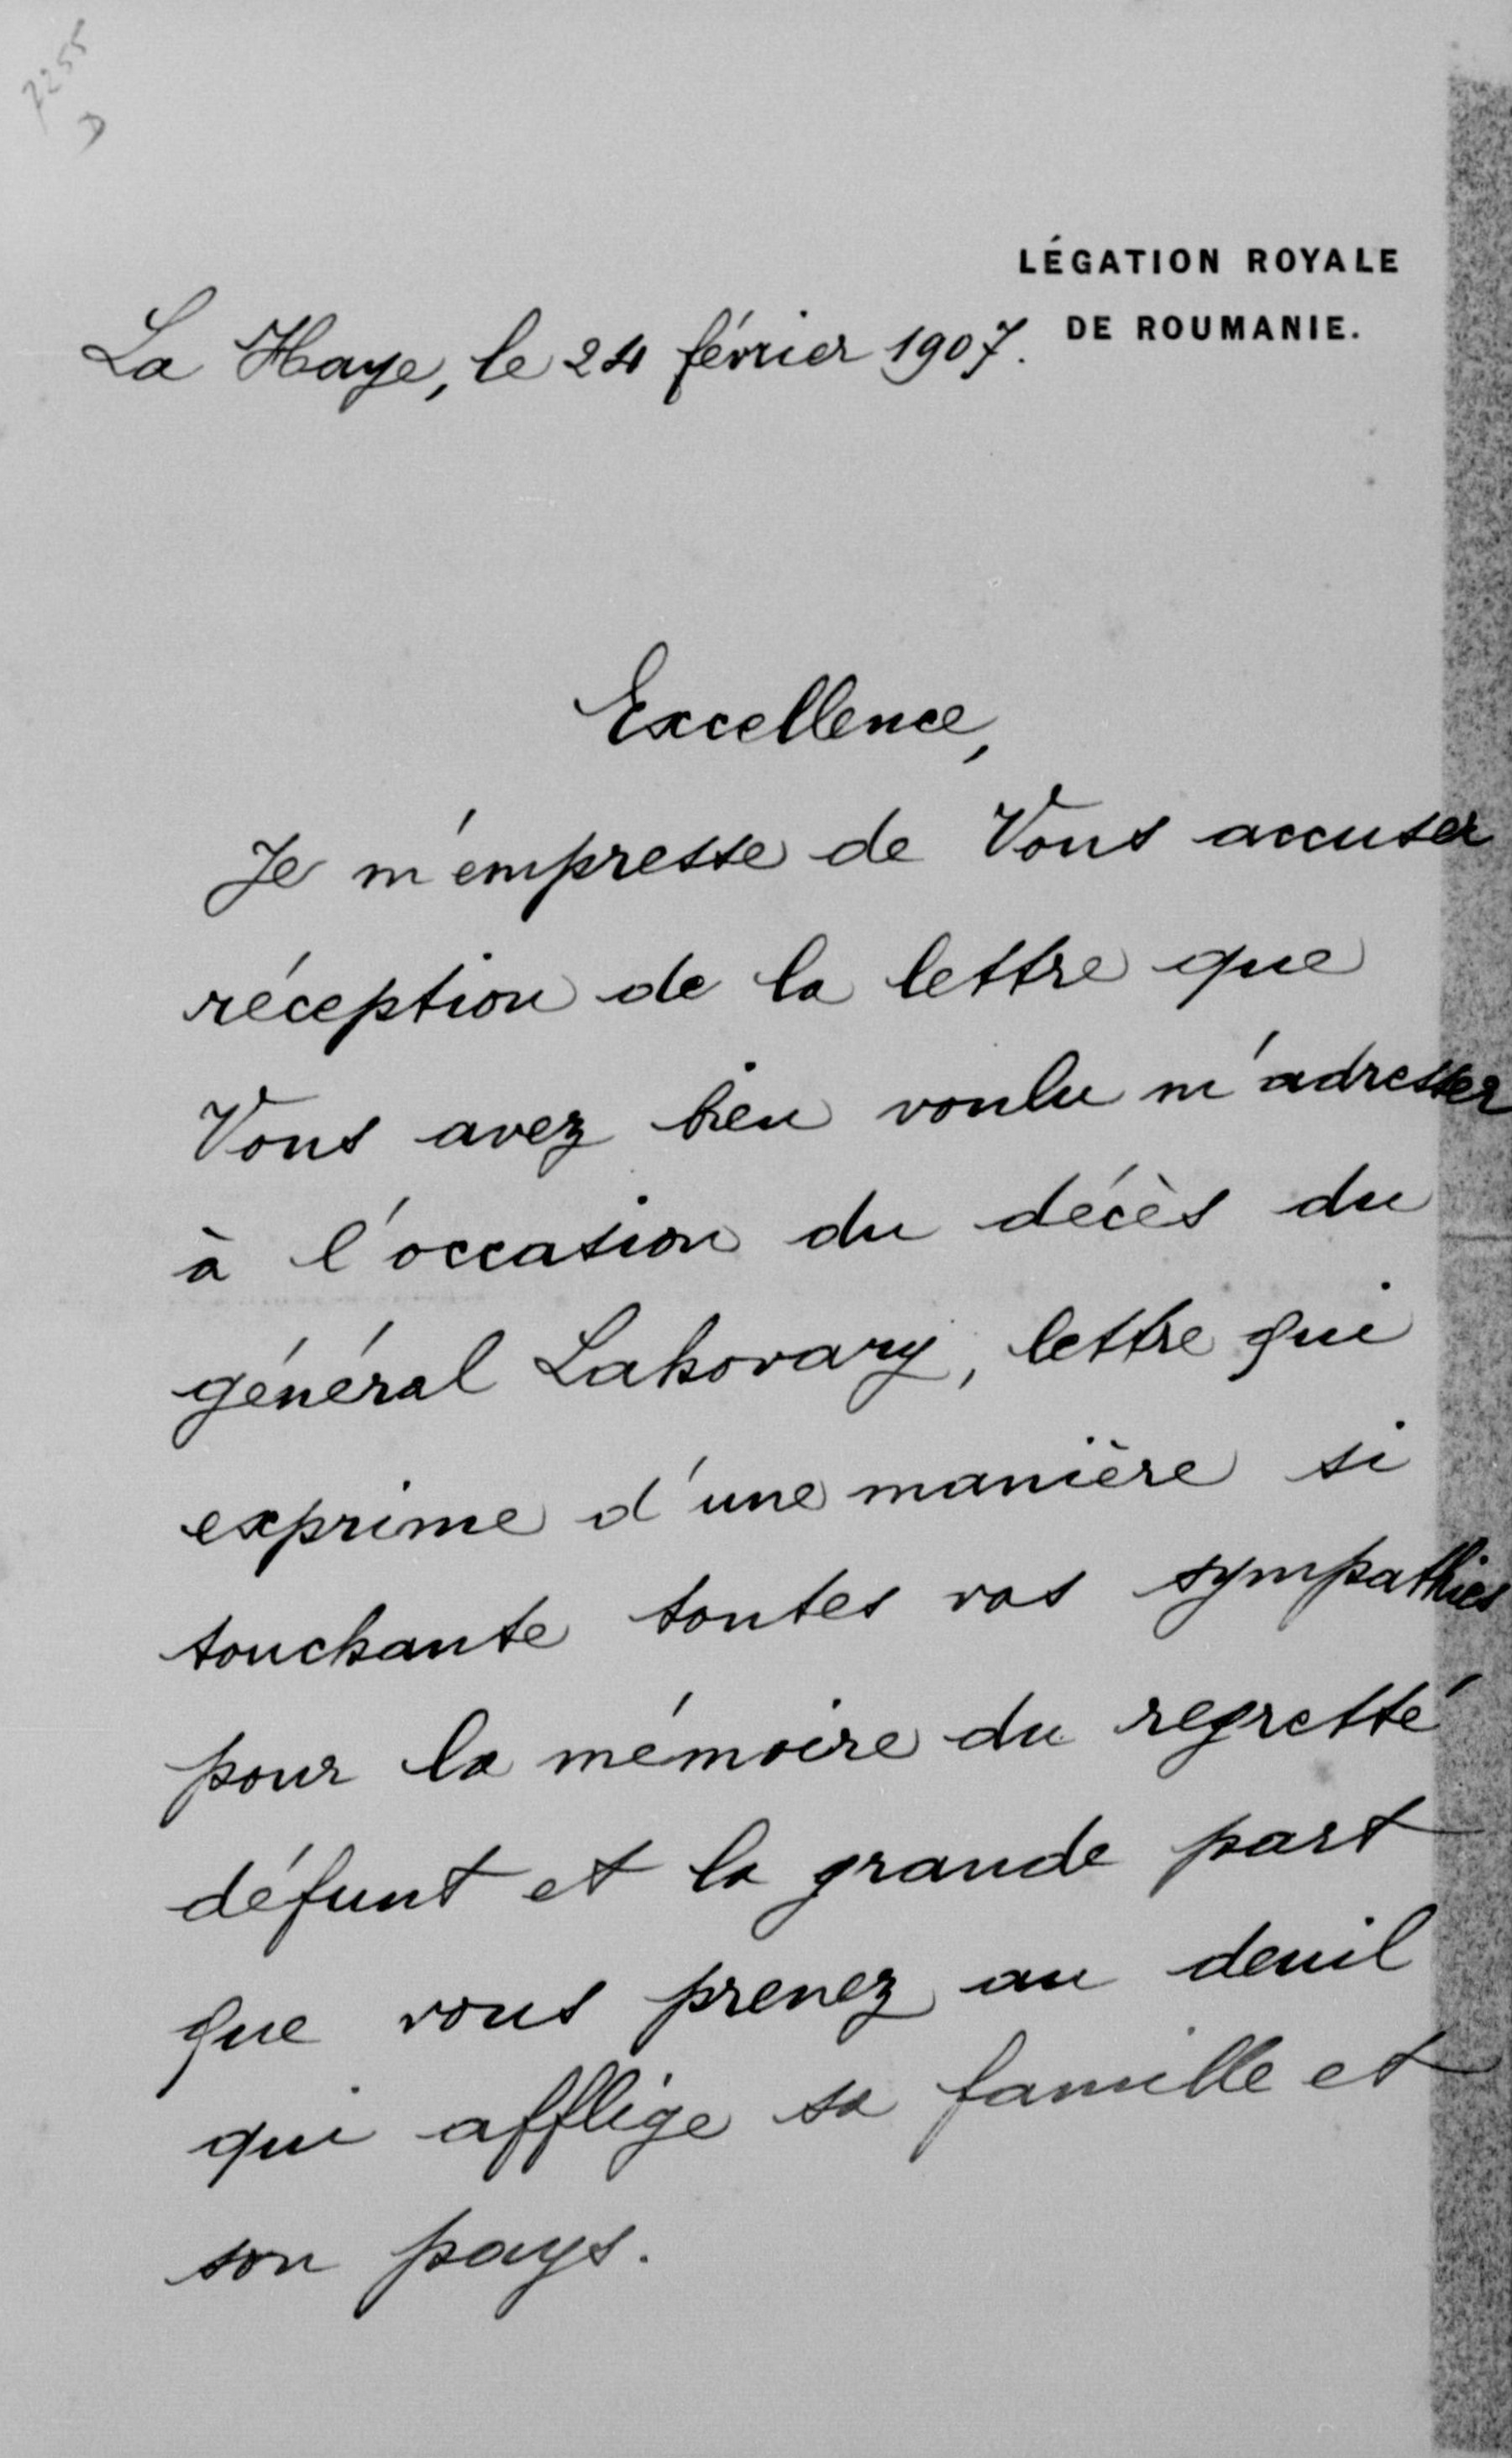 7255
D
LÉGATION ROYALE
DE ROUMANIE.
La Haye, le 24 février 1907.
Excellence,
Je m'empresse de Vous accuser
réception de la lettre que
Vous avez bien voulu m'adresser
à l'occasion du décès du
général Lahovary, lettre qui
exprime d'une manière si
touchante toutes vos sympathies
pour la mémoire du regretté
défunt et la grande part
que vous prenez au deuil
qui afflige sa famille et
son pays.